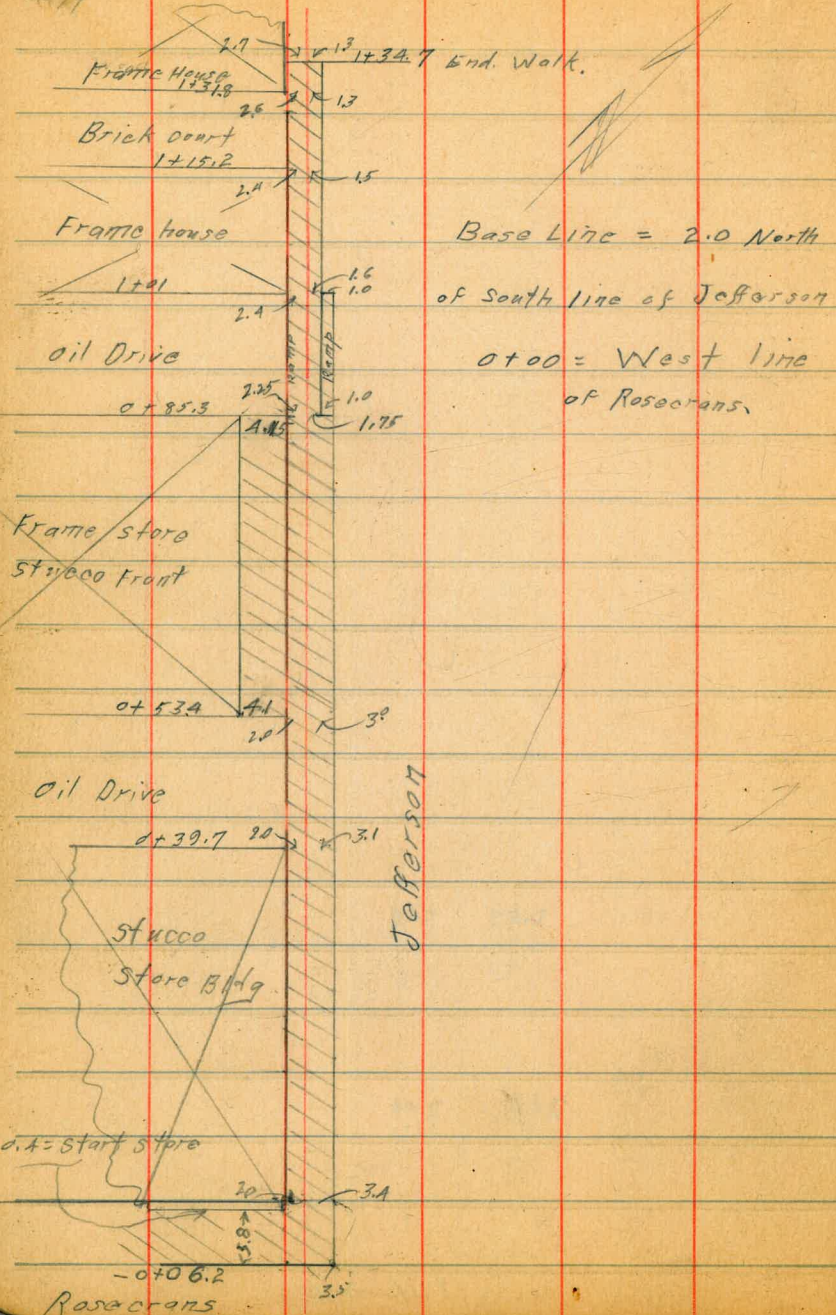 2.7 1.3 1+34.7 End. Walk.
Frame House
1+31.8
2.6 1.3
Brick court
1+15.2
2.4 1.5
Frame house
Base Line = 2.0 North
1+01 1.6
1.0
of South line of Jefferson
2.4
Ramp Ramp
Oil Drive
0+00 = West line
2.25 1.0
of Rosecrans.
0+85.3
1.75
Frame store
Stucco Front
0+53.4 4.1
2.0 3.0
Oil Drive
Jefferson
0+39.7 2.0 3.1
Stucco
Store Bldg
0.4= Start store
2.0 3.4
3.8
-0+06.2
3.5
Rosecrans